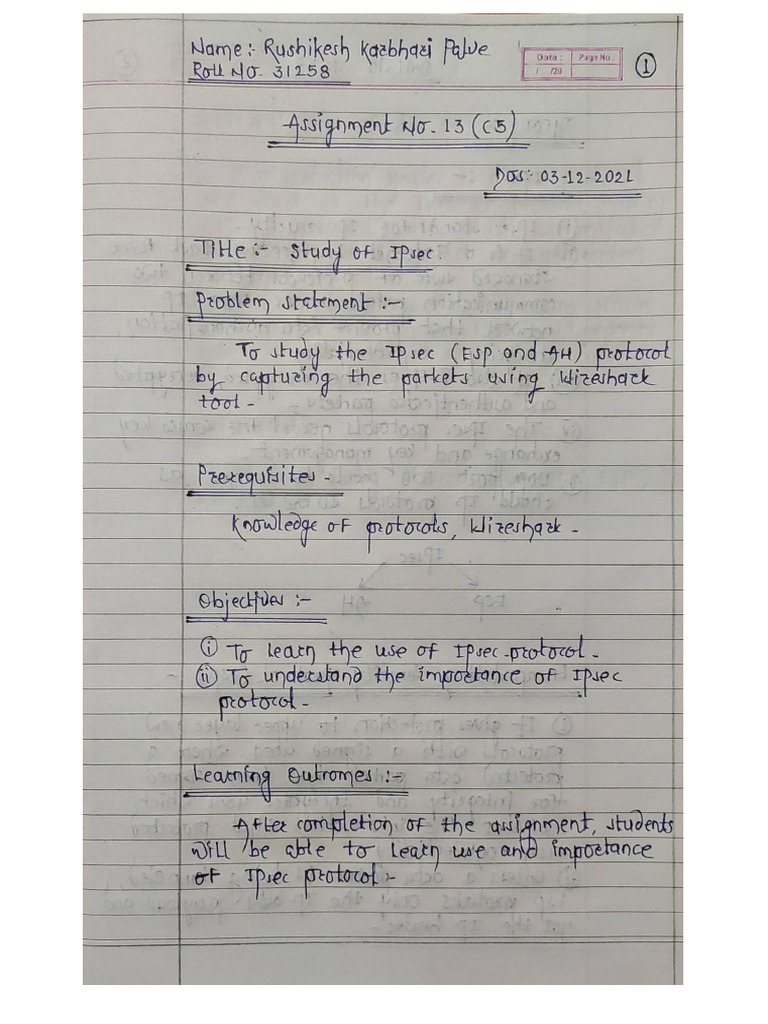 Name:- Rushikesh Karbhari Palve
Roll No. 31258
Date : Page No :
/ /20
1
Assignment No. 13 (C5)
DOS:- 03-12-2021
Title:- Study of IPsec.
Problem statement :-
To study the IPsec (ESP and AH) protocol
by capturing the packets using Wireshark
tool.
Prerequisites -
Knowledge of protocols, Wireshark -
Objectives :-
(i) To learn the use of IPsec protocol.
(ii) To understand the importance of IPsec
protocol.
Learning Outcomes :-
After completion of the assignment, students
will be able to learn use and importance
of IPsec protocol -